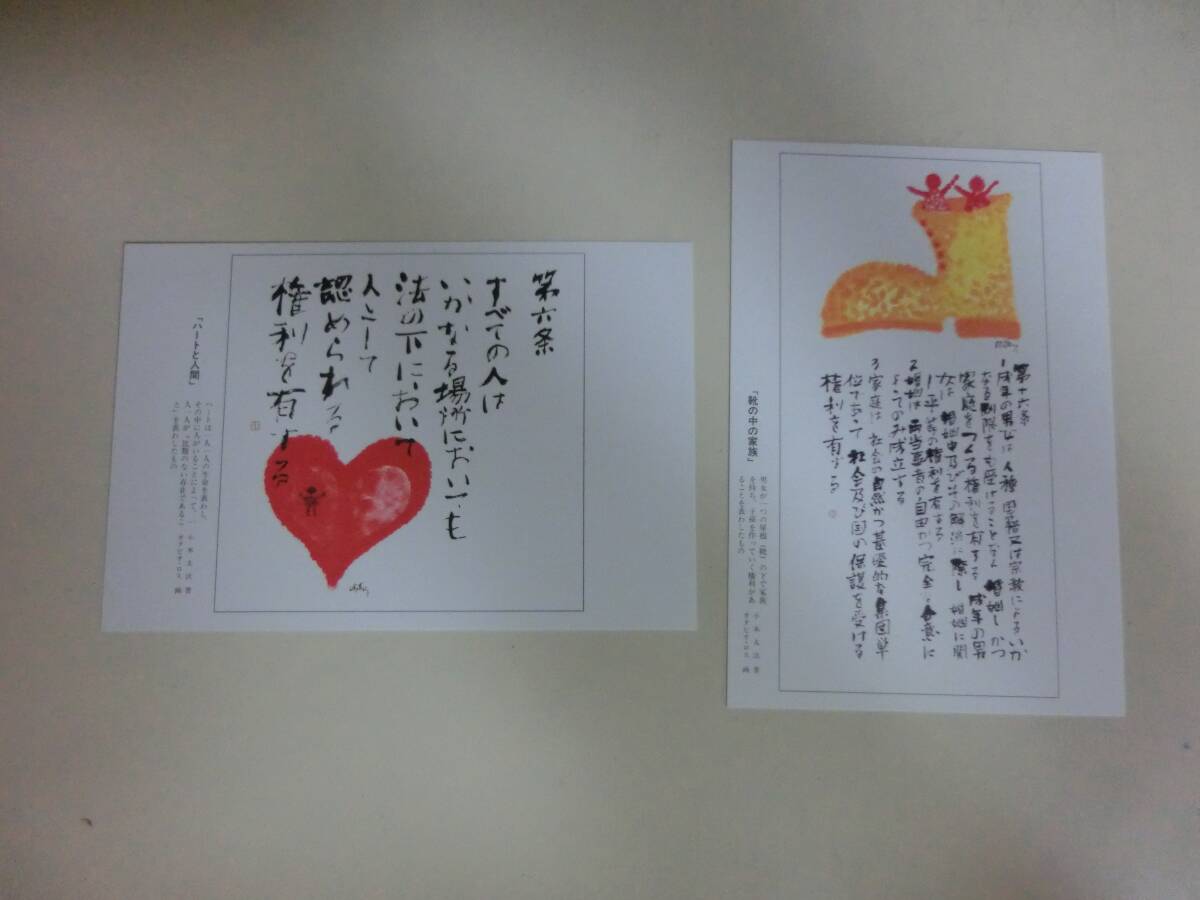 第六条
すべての人は
いかなる場所においても
法の下において
人として
認められる
権利を有する
「ハートと人間」
ハートは、一人一人の生命を表わし、
その中に人がいることによって、一
人一人が、比類のない存在であるこ
とを表わしたもの
オタビオ・ロス 画
第十六条
1 成年の男女は 人種 国籍又は宗教によるいか
なる制限をも受けることなく 婚姻し かつ
家庭をつくる権利を有する 成年の男
女は 婚姻中及びその解消に際し 婚姻に関
し平等の権利を有する
2 婚姻は 両当事者の自由かつ完全な合意に
よってのみ成立する
3 家庭は 社会の自然かつ基礎的な集団単
位であって 社会及び国の保護を受ける
権利を有する
「靴の中の家族」
男女が一つの屋根（靴）の下で家族
を持ち、子孫を作っていく権利があ
ることを表わしたもの
オタビオ・ロス 画